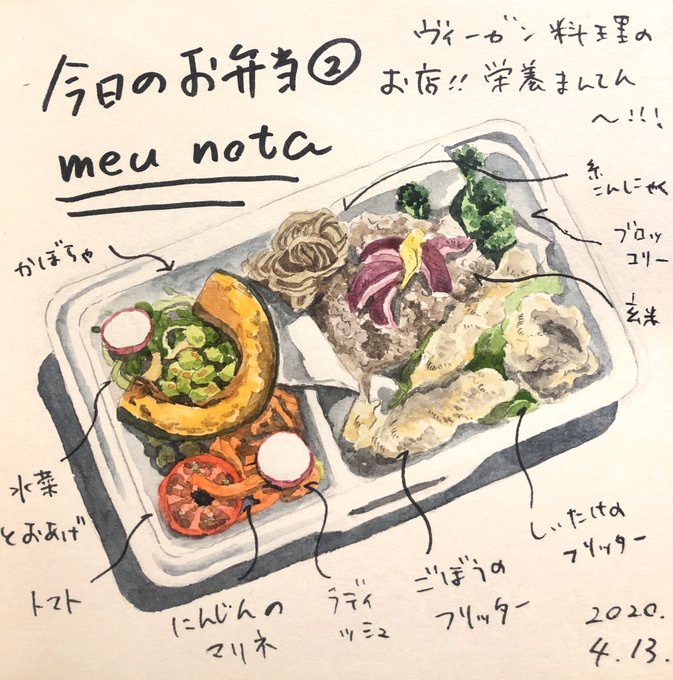 今日のお弁当②
meu nota
ヴィーガン料理の
お店!! 栄養まんてん
〜!!!
糸
こんにゃく
ブロッ
コリー
玄米
かぼちゃ
水菜
とおあげ
トマト
にんじんの
マリネ
ラディ
ッシュ
ごぼうの
フリッター
しいたけの
フリッター
2020.
4.13.